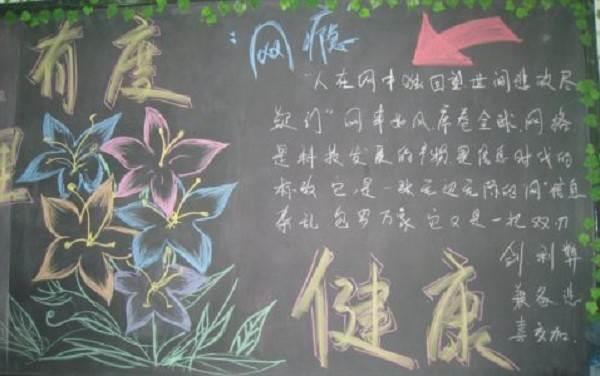 有度
"网瘾
"人在网中独回望世间悲欢尽
网事如风席卷全球.网络
是科技发展的产物是信息时代的
标致它是一张无边无际的网信息
杂乱包罗万象它又是一把双刃
剑利弊
兼备悲
喜交加.
健康